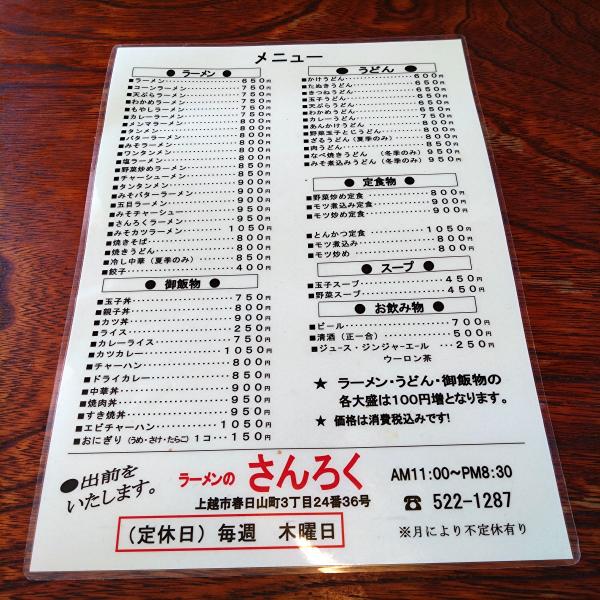 メニュー
● ラーメン ●
■ラーメン・・・・・・650円
■コーンラーメン・・・・・・750円
■天ぷらラーメン・・・・・・750円
■わかめラーメン・・・・・・750円
■もやしラーメン・・・・・・750円
■カレーラーメン・・・・・・750円
■メンマラーメン・・・・・・800円
■タンメン・・・・・・800円
■バターラーメン・・・・・・800円
■みそラーメン・・・・・・800円
■ワンタンメン・・・・・・800円
■塩ラーメン・・・・・・800円
■野菜炒めラーメン・・・・・・850円
■チャーシューメン・・・・・・850円
■タンタンメン・・・・・・900円
■みそバターラーメン・・・・・・900円
■五目ラーメン・・・・・・900円
■みそチャーシュー・・・・・・950円
■さんろくラーメン・・・・・・950円
■みそカツラーメン・・・・・・1050円
■焼きそば・・・・・・800円
■焼きうどん・・・・・・800円
■冷し中華（夏季のみ）・・・・・・850円
■餃子・・・・・・400円
● 御飯物 ●
■玉子丼・・・・・・750円
■親子丼・・・・・・800円
■カツ丼・・・・・・900円
■ライス・・・・・・250円
■カレーライス・・・・・・750円
■カツカレー・・・・・・1050円
■チャーハン・・・・・・800円
■ドライカレー・・・・・・800円
■中華丼・・・・・・900円
■焼肉丼・・・・・・950円
■すき焼丼・・・・・・950円
■エビチャーハン・・・・・・1050円
■おにぎり（うめ・さけ・たらこ）１コ・・・150円
● うどん ●
■かけうどん・・・・・・600円
■たぬきうどん・・・・・・650円
■きつねうどん・・・・・・650円
■玉子うどん・・・・・・650円
■天ぷらうどん・・・・・・650円
■わかめうどん・・・・・・650円
■カレーうどん・・・・・・750円
■あんかけうどん・・・・・・800円
■野菜玉子とじうどん・・・・・・800円
■ざるうどん（夏季のみ）・・・・・・800円
■肉うどん・・・・・・800円
■なべ焼きうどん （冬季のみ）950円
■みそ煮込みうどん（冬季のみ）950円
● 定食物 ●
■野菜炒め定食・・・・・・800円
■モツ煮込み定食・・・・・・900円
■モツ炒め定食・・・・・・900円
■とんかつ定食・・・・・・1050円
■モツ煮込み・・・・・・800円
■モツ炒め・・・・・・800円
● スープ ●
■玉子スープ・・・・・・450円
■野菜スープ・・・・・・450円
● お飲み物 ●
■ビール・・・・・・700円
■清酒（正一合）・・・・・・500円
■ジュース・ジンジャーエール・・・250円
ウーロン茶
★ ラーメン・うどん・御飯物の
各大盛は100円増となります。
★ 価格は消費税込みです!
●出前を
いたします。
ラーメンの さんろく
上越市春日山町3丁目24番36号
（定休日）毎週 木曜日
AM11:00～PM8:30
☎ 522-1287
※月により不定休有り